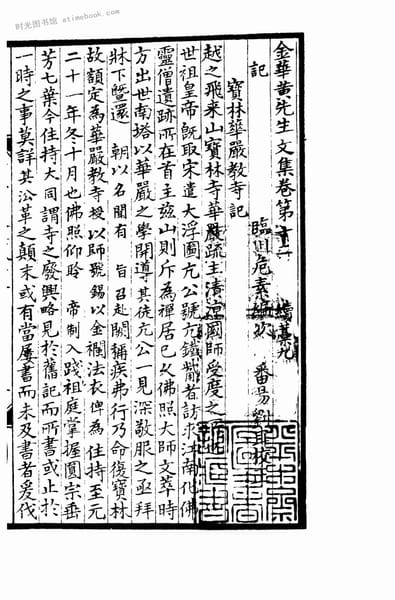 时光图书馆 atimebook.com
金華黃先生文集卷第十二 續藁九
臨川危素編次 番易劉耳校正
記
寶林華嚴教寺記
越之飛来山寶林寺華嚴疏主清涼國師受度之
世祖皇帝既取宋遣大浮圖亢公號亢鐵觜者訪求江南化佛
靈僧遺跡所在首主兹山則斥為禪居已乆佛照大師文萃時
方出世南塔以華嚴之學開導其徒亢公一見深敬服之亟拜
牀下曁還 朝以名聞有 旨召赴闕稱疾弗行乃命復寶林
故額定為華嚴教寺授以師號錫以金襴法衣俾為住持至元
二十一年冬十月也佛照仰聆 帝制入踐祖庭掌握圓宗垂
芳七葉今住持大同謂寺之廢興略見於舊記而所書或止於
一時之事莫詳其沿革之顛末或有當屢書而未及書者爰伐